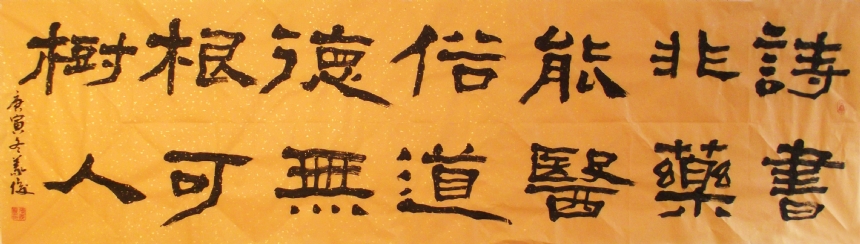 詩書
非藥
能醫
俗道
德無
根可
樹人
庚寅冬